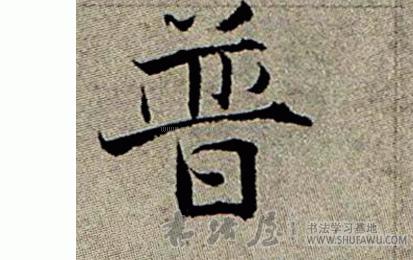 普
书法屋
书法学习基地
WWW.SHUFAWU.COM